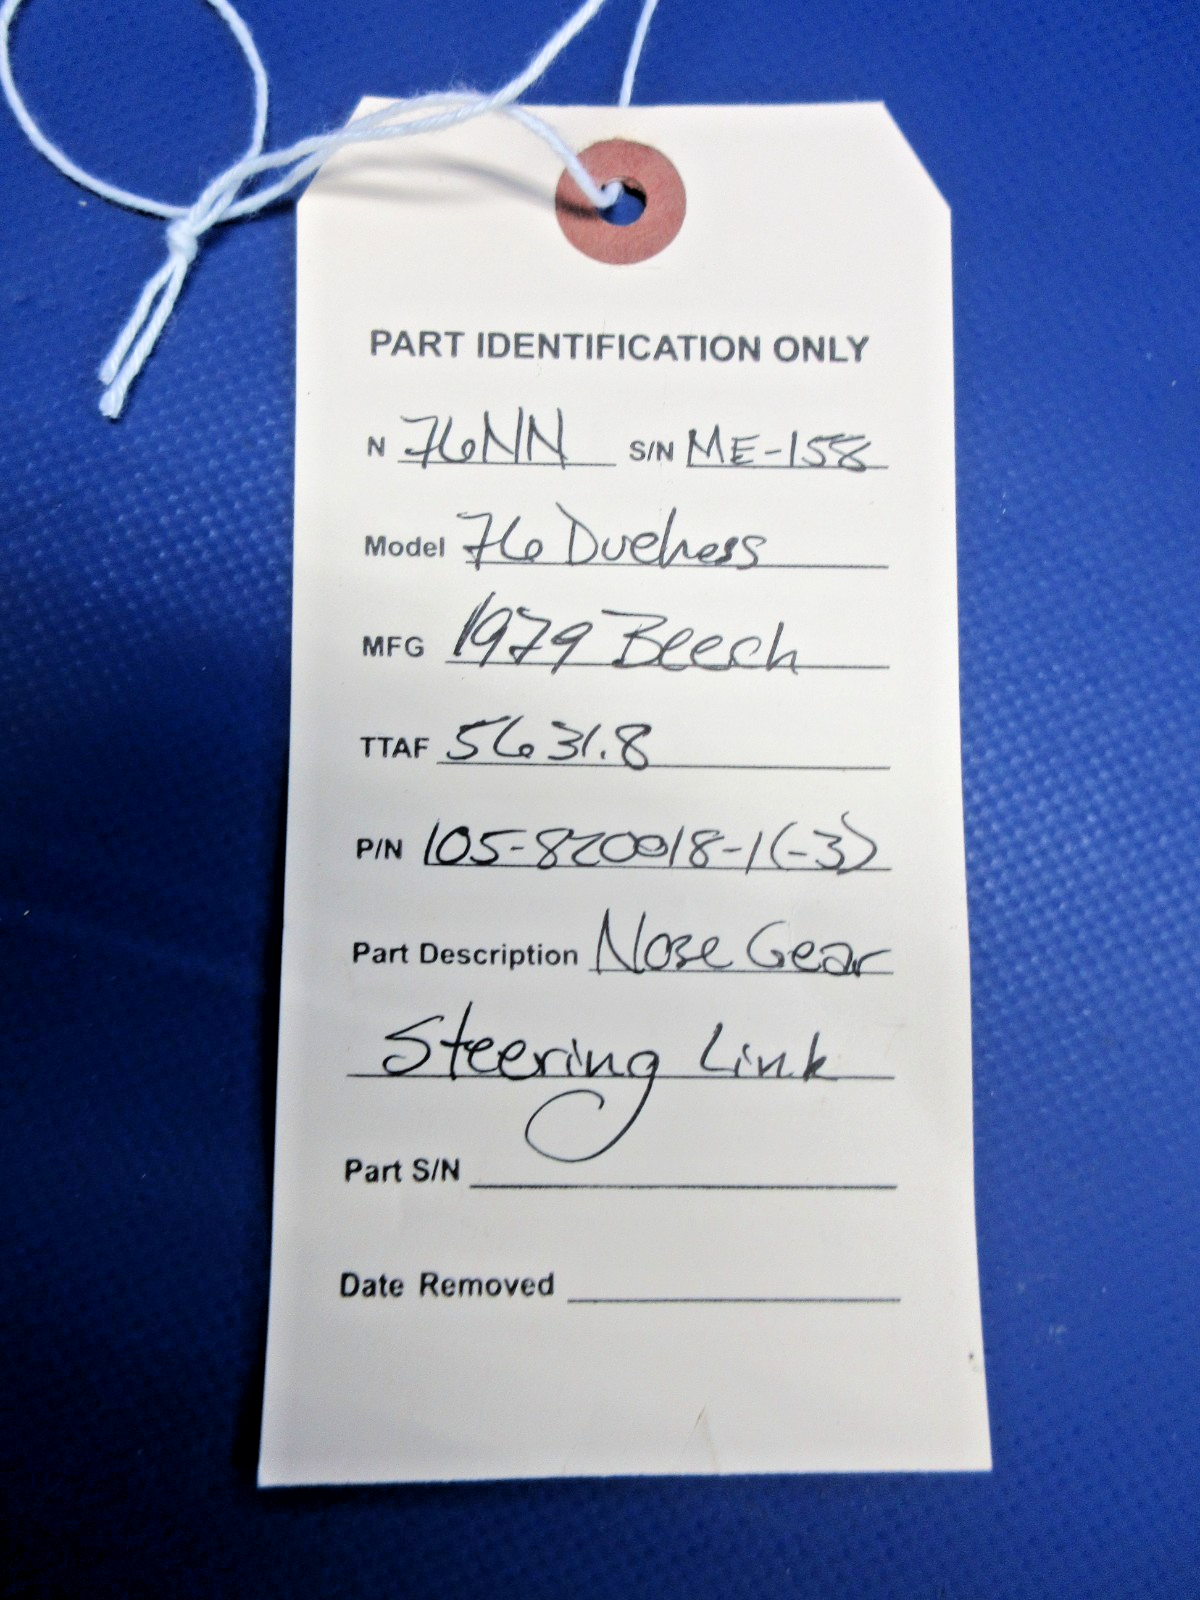 PART IDENTIFICATION ONLY
N 76NN S/N ME-158
Model 76 Duchess
MFG 1979 Beech
TTAF 5631.8
P/N 105-820018-1(-3)
Part Description Nose Gear
Steering Link
Part S/N
Date Removed